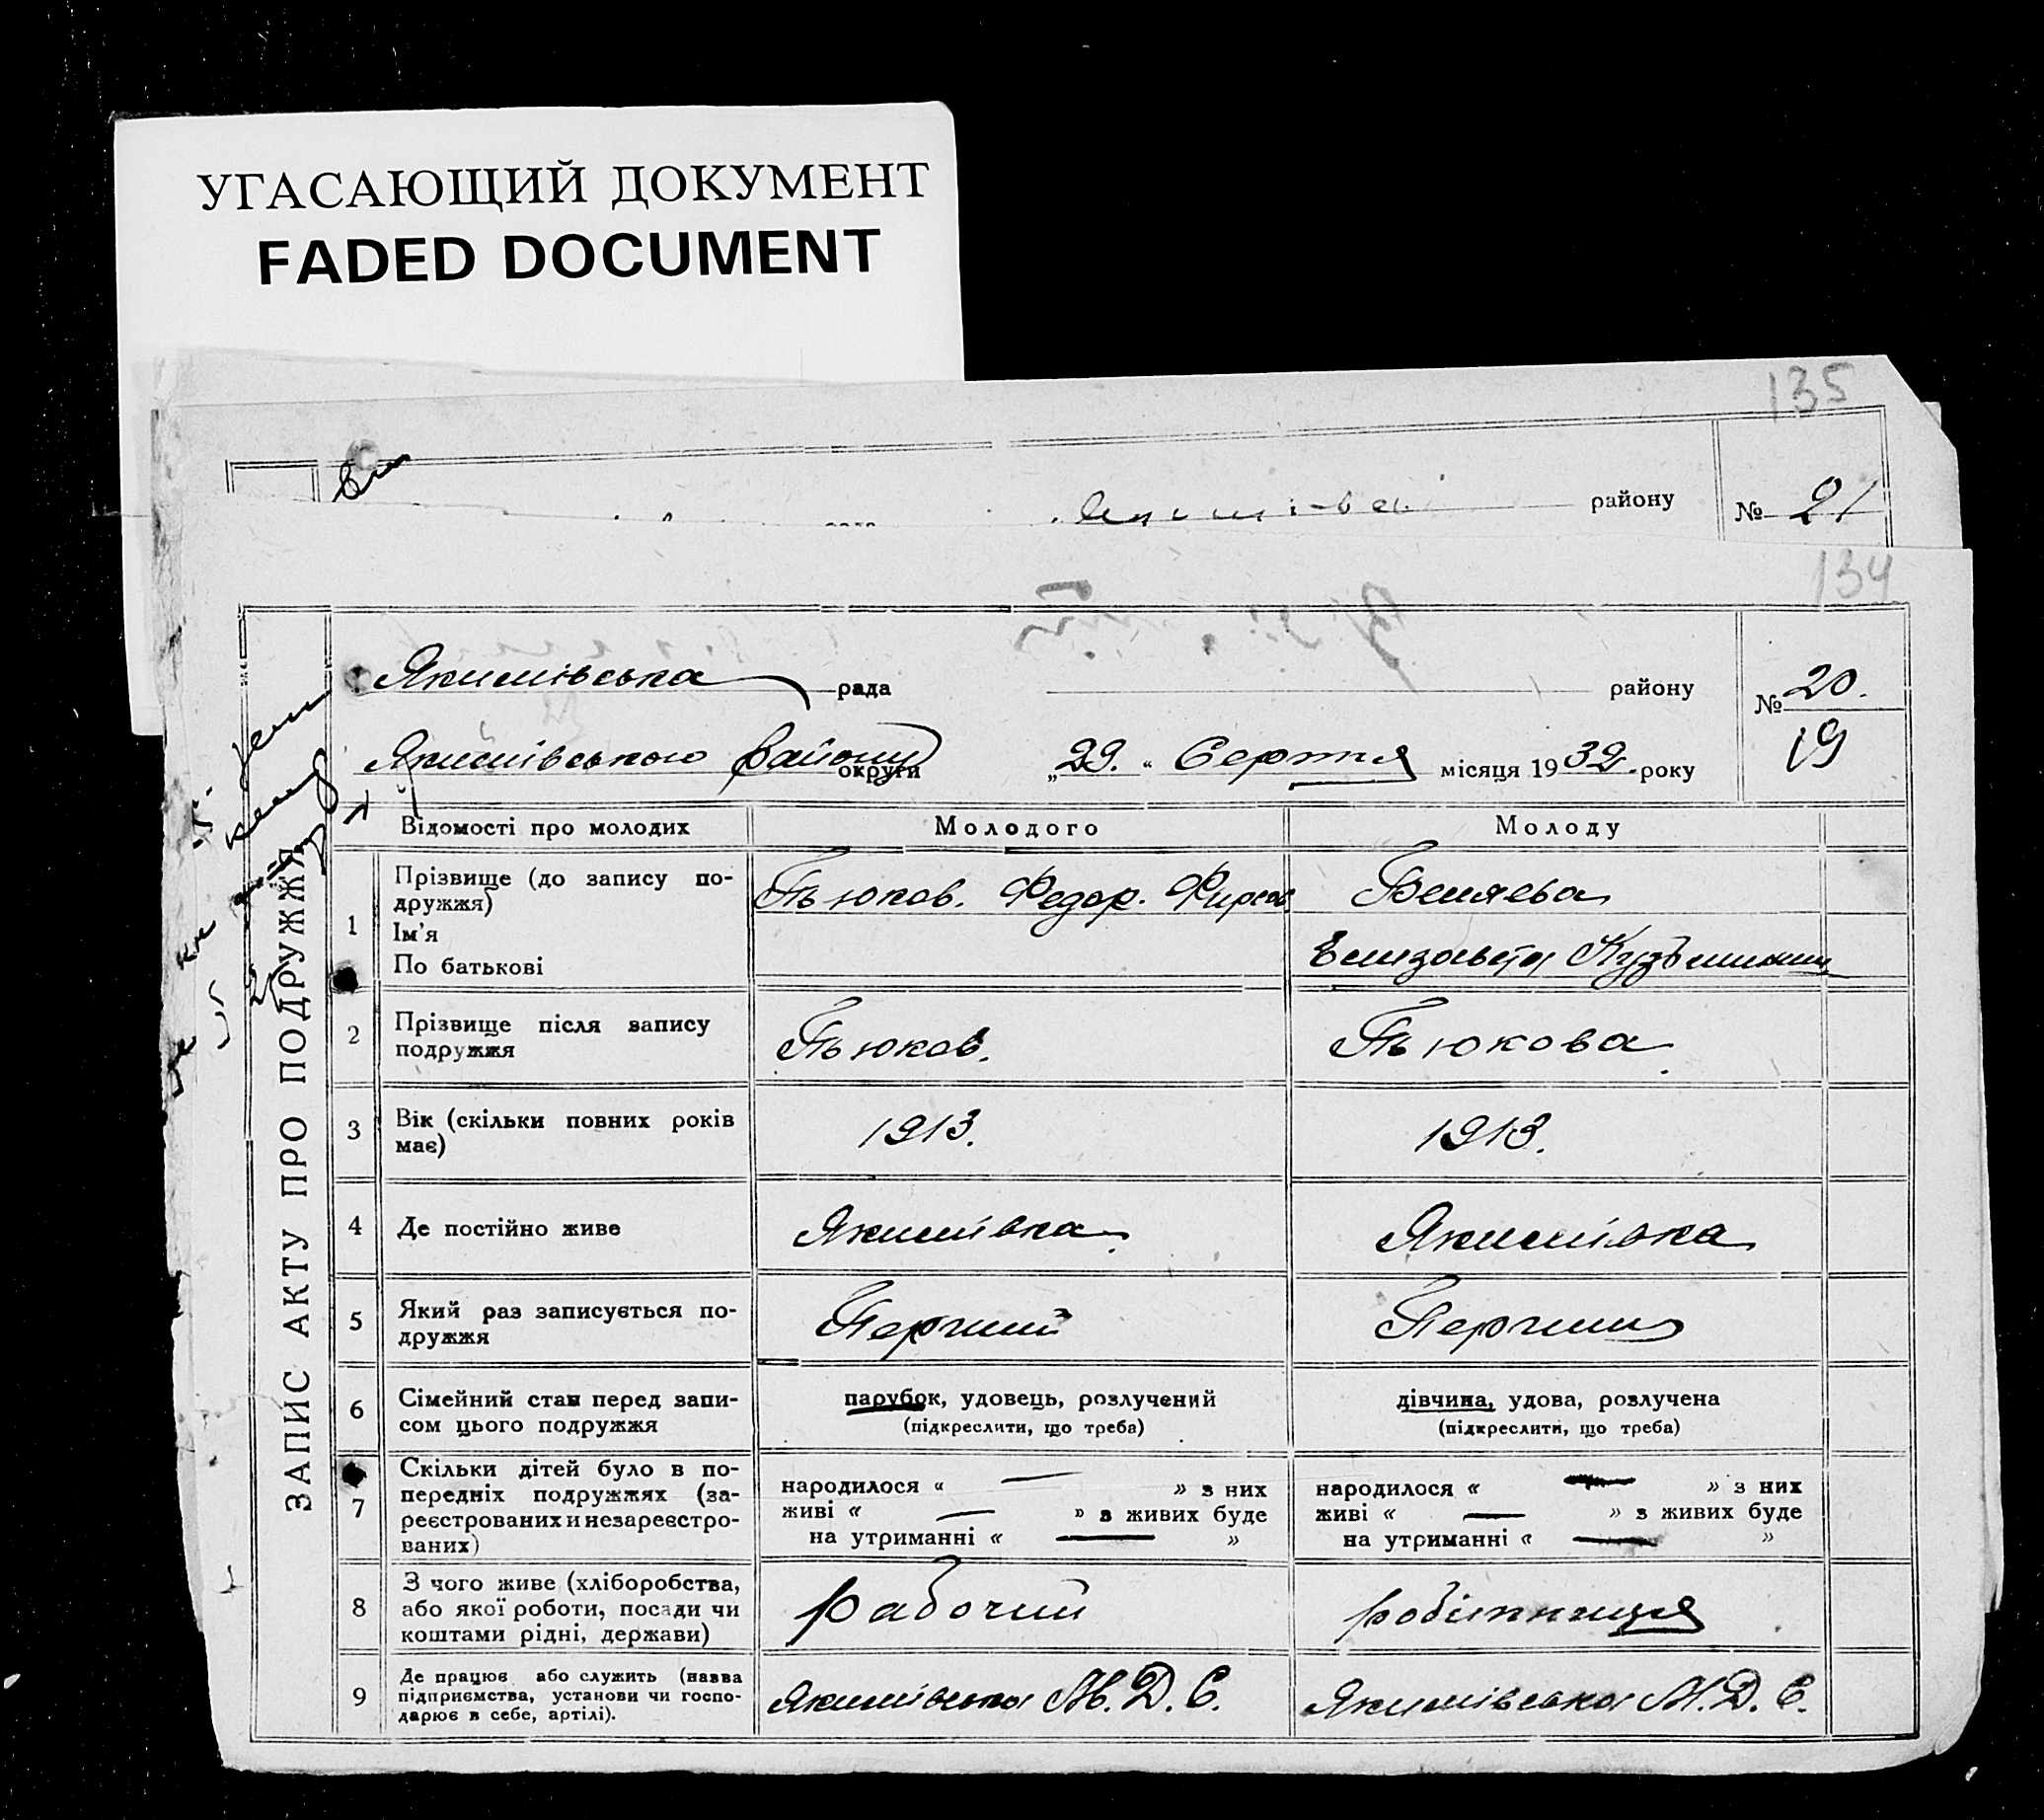 УГАСАЮЩИЙ ДОКУМЕНТ
FADED DOCUMENT
135
району
№ 21
134
Якимівська рада району
№ 20.
Якимівського району округи „29.“ Серпня місяця 1932 року
19
ЗАПИС АКТУ ПРО ПОДРУЖЖЯ
Відомості про молодих Молодого Молоду
1 Прізвище (до запису по-
дружжя)
Ім'я
По батькові
Пьюков. Федор. Фирсов
Беляева
Елизавета Кузьминич
2 Прізвище після запису
подружжя
Пьюков. Пьюкова
3 Вік (скільки повних років
має)
1913. 1913.
4 Де постійно живе Якимівка Якимівка
5 Який раз записується по-
дружжя
Перший Перший
6 Сімейний стан перед запи-
сом цього подружжя
парубок, удовець, розлучений
(підкреслити, що треба)
дівчина, удова, розлучена
(підкреслити, що треба)
7 Скільки дітей було в по-
передніх подружжях (за-
реєстрованих и незареєстро-
ваних)
народилося « — » з них
живі « — » з живих буде
на утриманні « — »
народилося « — » з них
живі « — » з живих буде
на утриманні « — »
8 З чого живе (хліборобства,
або якої роботи, посади чи
коштами рідні, держави)
рабочий робітниця
9 Де працює або служить (назва
підприємства, установи чи госпо-
дарює в себе, артілі).
Якимівська М.Д.С. Якимівська М.Д.С.